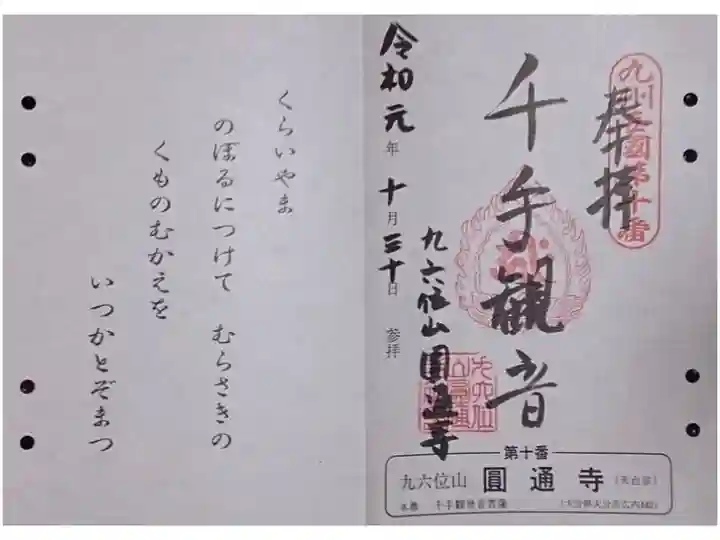 九州西國第十番
奉拝
千手觀音
九六位山圓通寺
令和元年十月三十日 参拝
第十番
九六位山 圓通寺 (天台宗)
本尊 千手觀世音菩薩
くらいやま
のぼるにつけて むらさきの
くものむかえを
いつかとぞまつ